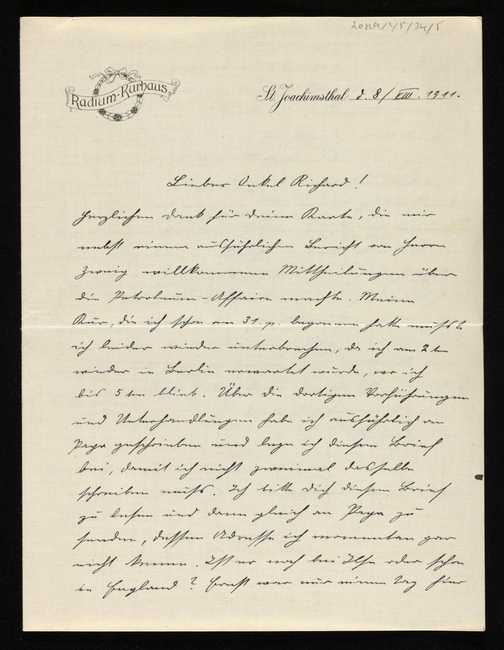 Radium-Kurhaus
St. Joachimsthal d. 8/VIII. 1911.
Lieber Onkel Richard!
Herzlichen Dank für deine Karte, die mir
nebst einem ausführlichen Bericht von Herrn
Zweig willkommene Mittheilungen über
die Petroleum-Affaire machte. Meine
Kur, die ich schon am 31. p. begonnen hatte mußte
ich leider wieder unterbrechen, da ich am 2ten
wieder in Berlin erwartet wurde, wo ich
bis 5ten blieb. Über die dortigen Vorführungen
und Unterhandlungen habe ich ausführlich an
Papa geschrieben und lege ich diesen Brief
bei, damit ich nicht zweimal dasselbe
schreiben muß. Ich bitte dich diesen Brief
zu lesen und dann gleich an Papa zu
senden, dessen Adresse ich momentan gar
nicht kenne. Ist er noch bei Ilse oder schon
in England? Ernst war nur einen Tag hier